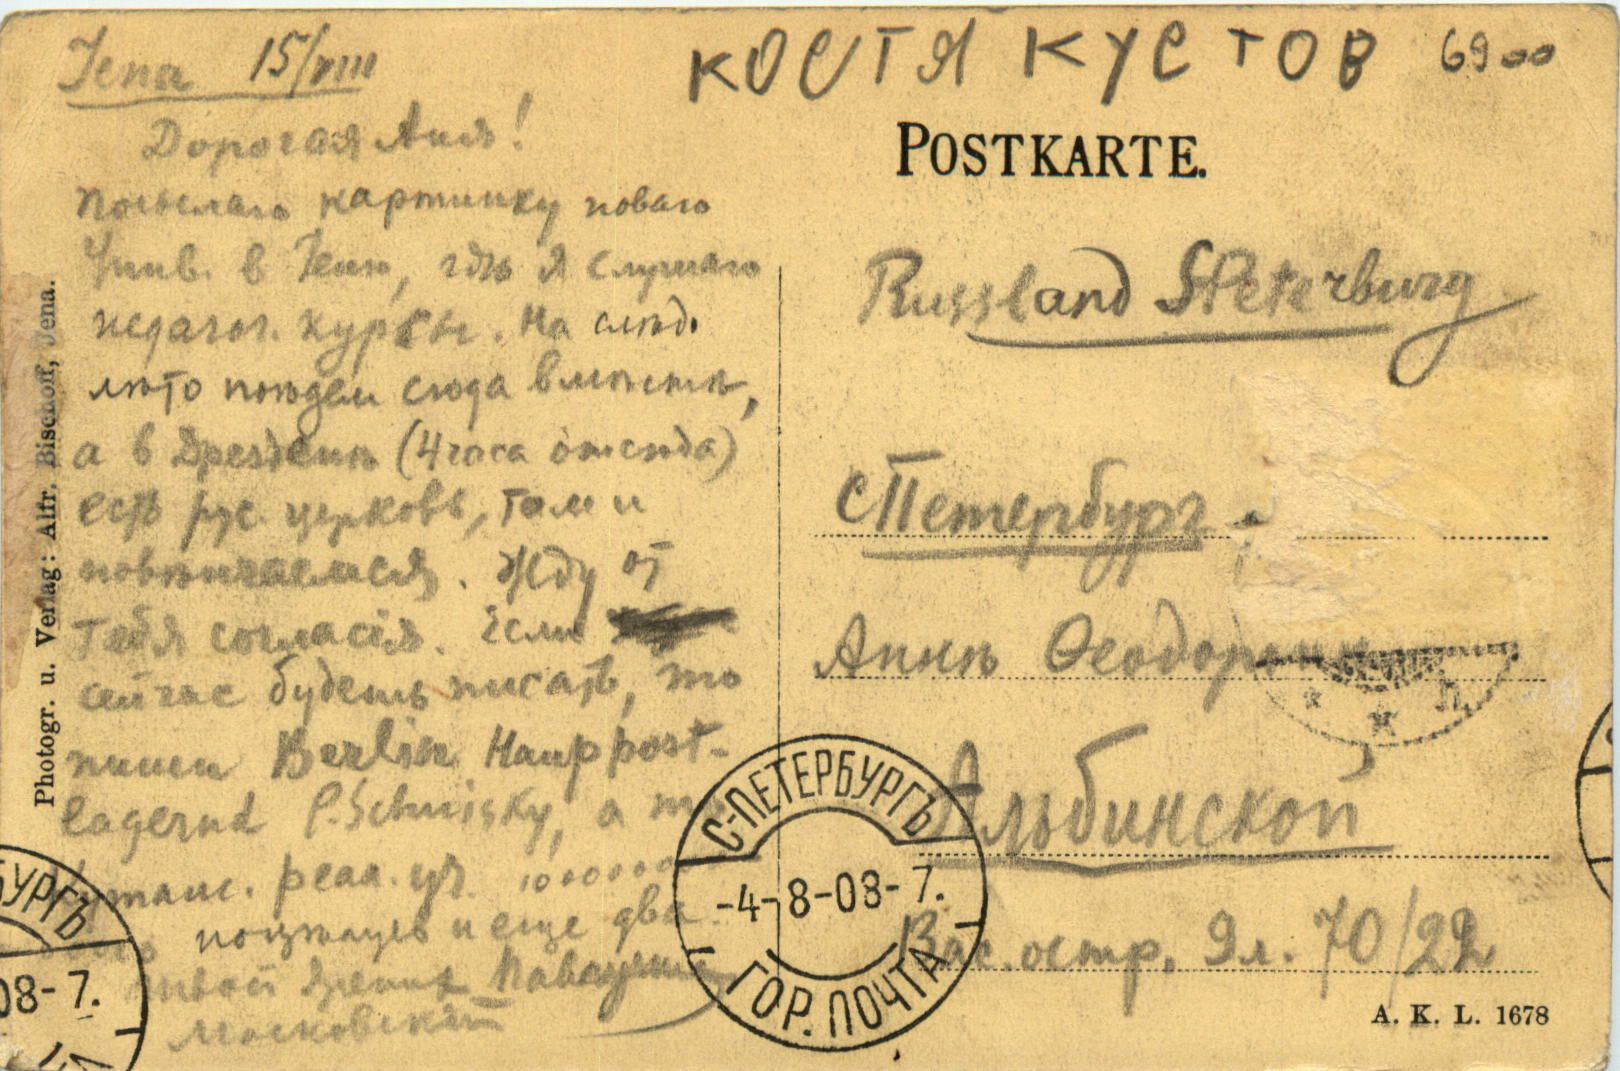 Jena 15/VIII
Дорогая Аня!
посылаю картинку новаго
Унив. в Іене, гдѣ я слушаю
педагог. курсы. На слѣд.
лѣто поѣдем сюда вмѣстѣ,
а в Дрезденѣ (4 часа отсюда)
есть рус. церковь, там и
повѣнчаемся. Жду от
тебя согласія. Если
сейчас будешь писать, то
пиши Berlin Hauppost-
lagernd P. а то
реал. уч. 1000000
поцѣлуев и еще два.
твой
Московскій
КОСТЯ КУСТОВ 6900
POSTKARTE.
Russland StPeterburg
С Петербург
Аннѣ Ѳеодоровнѣ
Альбинской
Вас. остр. 9 л. 70/22
С-ПЕТЕРБУРГЪ
-4-8-08-7.
ГОР. ПОЧТА
БУРГЪ
08-7.
Photogr. u. Verlag: Alfr. Bischoff, Jena.
A. K. L. 1678